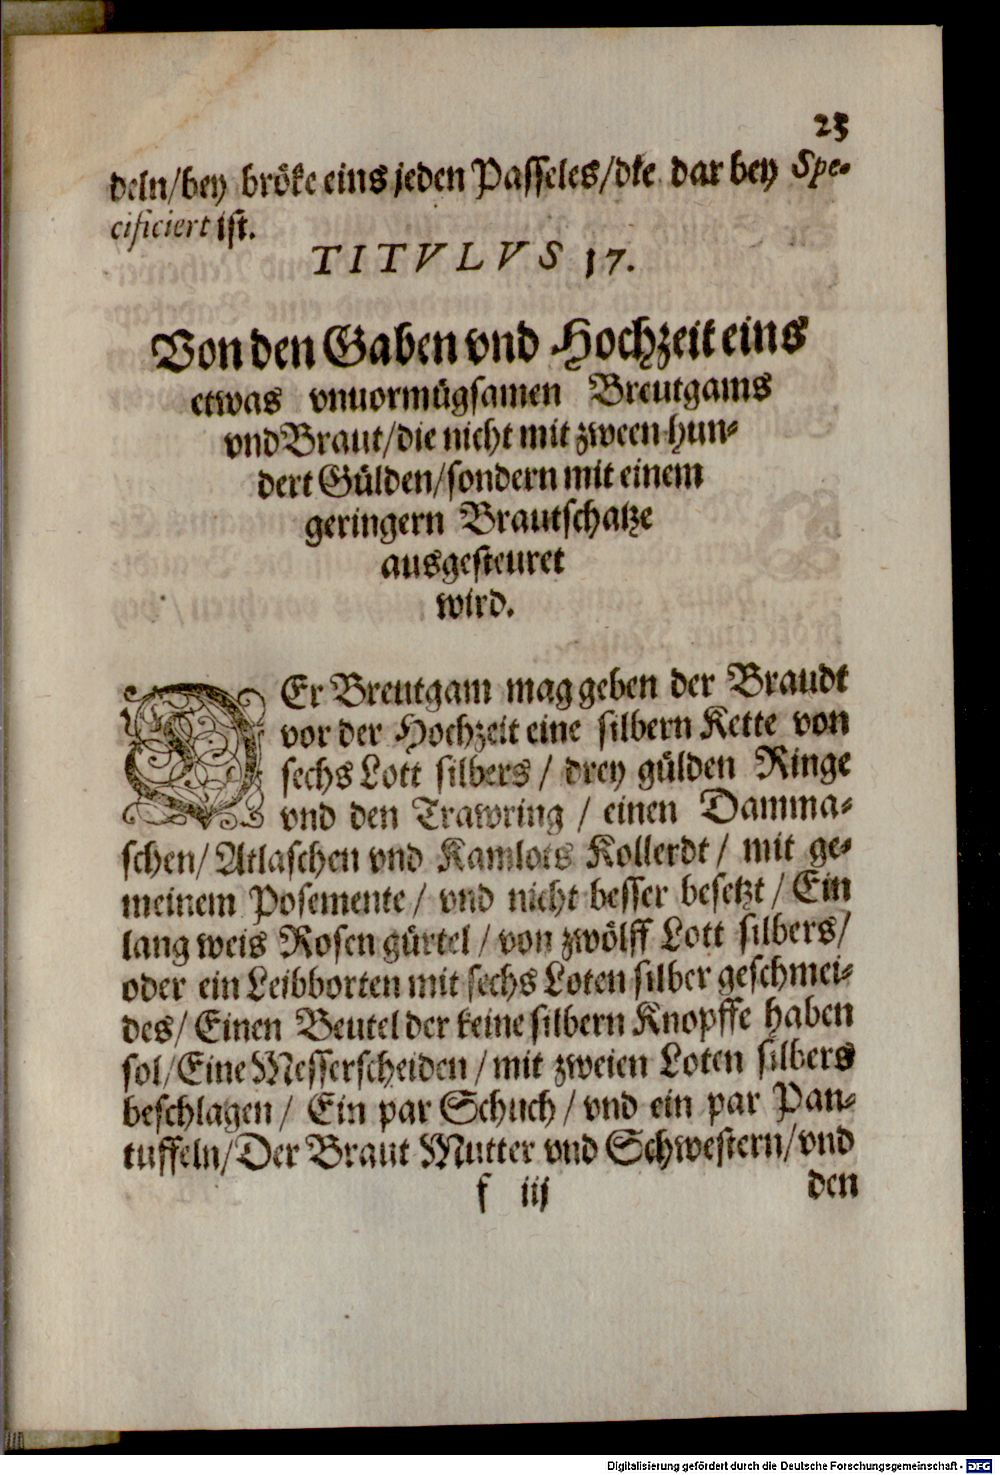 23
deln/bey bröke eins jeden Passeles/dke dar bey Spe-
cificiert ist.
TITVLVS 17.
Von den Gaben vnd Hochzeit eins
etwas vnuormügsamen Breutgams
vnd Braut/die nicht mit zween hun-
dert Gülden/sondern mit einem
geringern Brautschatze
ausgesteuret
wird.
DEr Breutgam mag geben der Braudt
vor der Hochzeit eine silbern Kette von
sechs Lott silbers / drey gülden Ringe
vnd den Trawring / einen Damma-
schen/ Atlaschen vnd Kamlots Kollerdt / mit ge-
meinem Posemente / vnd nicht besser besetzt / Ein
lang weis Rosen gürtel / von zwölff Lott silbers/
oder ein Leibborten mit sechs Loten silber geschmei-
des/ Einen Beutel der keine silbern Knopffe haben
sol/Eine Messerscheiden / mit zweien Loten silbers
beschlagen / Ein par Schuch / vnd ein par Pan-
tuffeln/Der Braut Mutter vnd Schwestern/vnd
f iij den
Digitalisierung gefördert durch die Deutsche Forschungsgemeinschaft - DFG